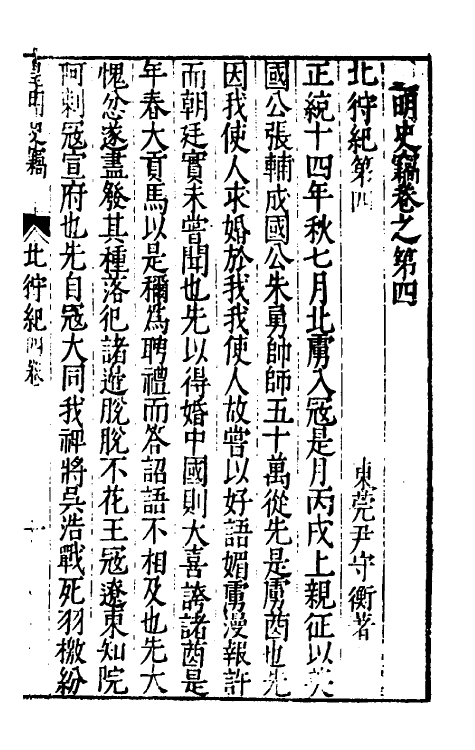 明史竊卷之第四
北狩紀第四
東莞尹守衡著
正統十四年秋七月北虜入寇是月丙戌上親征以英
國公張輔成國公朱勇帥師五十萬從先是虜酋也先
因我使人求婚於我我使人故嘗以好語媚虜漫報許
而朝廷實未嘗聞也先以得婚中國則大喜誇諸酋是
年春大貢馬以是稱為聘禮而答詔語不相及也先大
愧忿遂盡發其種落犯諸邊脫脫不花王寇遼東知院
阿剌寇宣府也先自寇大同我裨將吳浩戰死羽檄紛
皇明史竊
北狩紀四卷
一